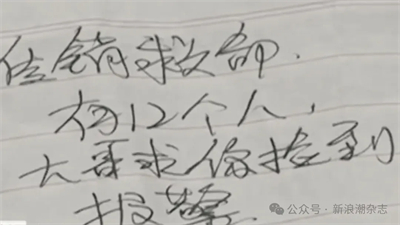 传销求救部.
有12个人,
大哥求你捡到
报警.
公众号·新浪潮杂志